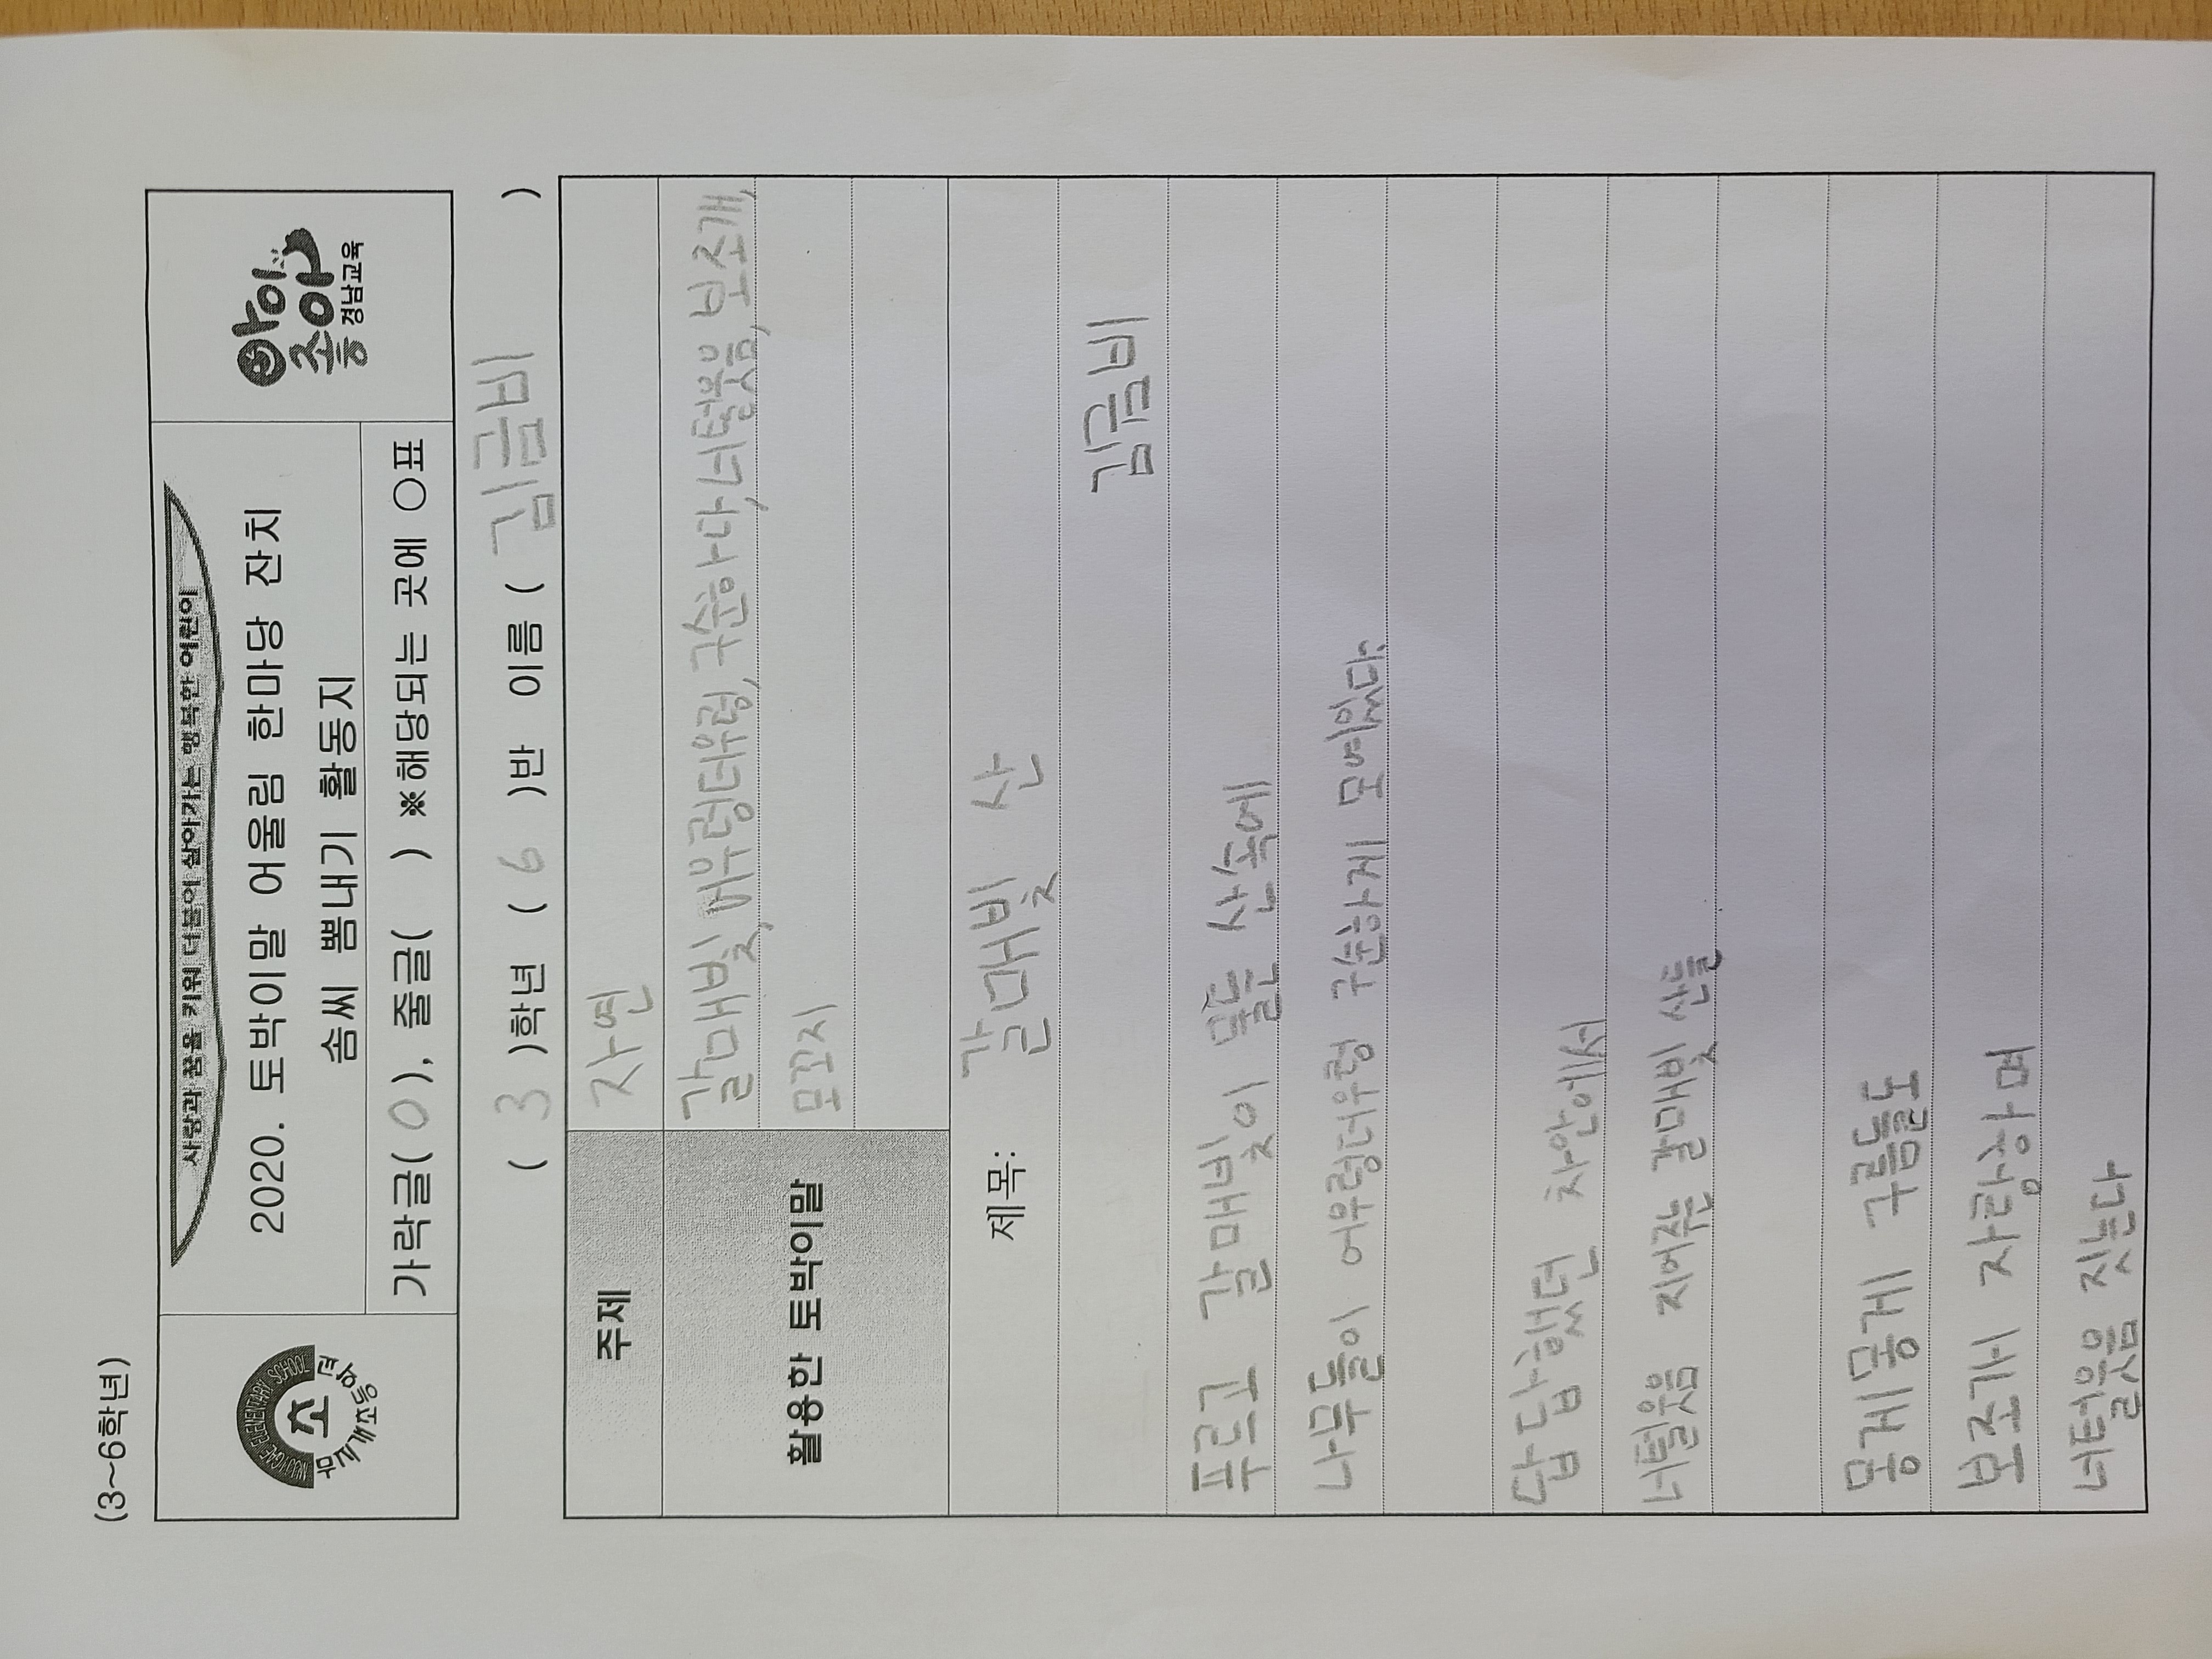 (3~6학년)
MUJIGAE ELEMENTARY SCHOOL
초
무지개초등학교
사랑과 꿈을 키워 더불어 살아가는 행복한 어린이
2020. 토박이말 어울림 한마당 잔치
솜씨 뽐내기 활동지
가락글( O ), 줄글(    ) ※해당되는 곳에 ○표
아이좋아
경남교육
( 3 )학년 ( 6 )반 이름 ( 김금비 )
주제 자연
활용한 토박이말
갈매빛, 어우렁더우렁, 구순하다, 너털웃음, 보조개,
모꼬지
제목: 갈매빛 산
김금비
푸르고 갈매빛이 돋은 산속에
나무들이 어우렁더우렁 구순하게 모여있다.
답답했던 차안에서
너털웃음 지어준 갈매빛 산들
뭉게뭉게 구름들도
보조개 자랑하며
너털웃음 짓는다